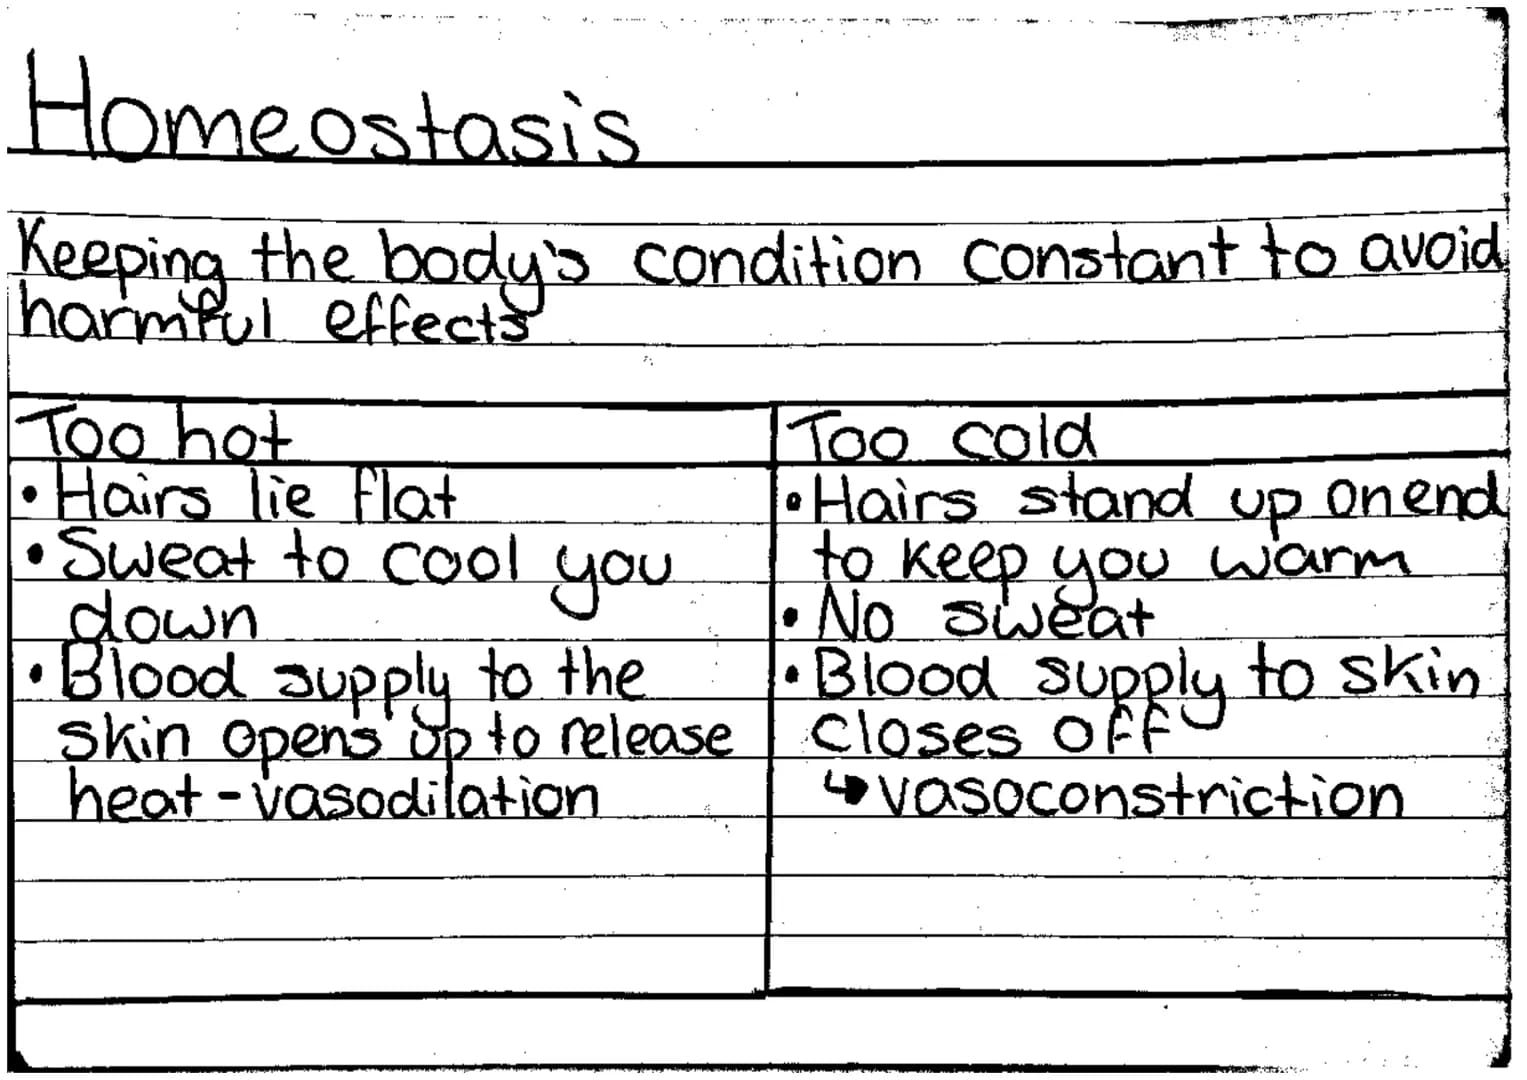 Homeostasis
Keeping the body's condition constant to avoid
harmful effects
Too hot
• Hairs lie flat
• Sweat to cool you
down
• Blood supply to the
skin opens up to release
heat - vasodilation
Too cold
• Hairs stand up on end
to keep you warm
• No sweat
• Blood supply to skin
closes off
↳ vasoconstriction